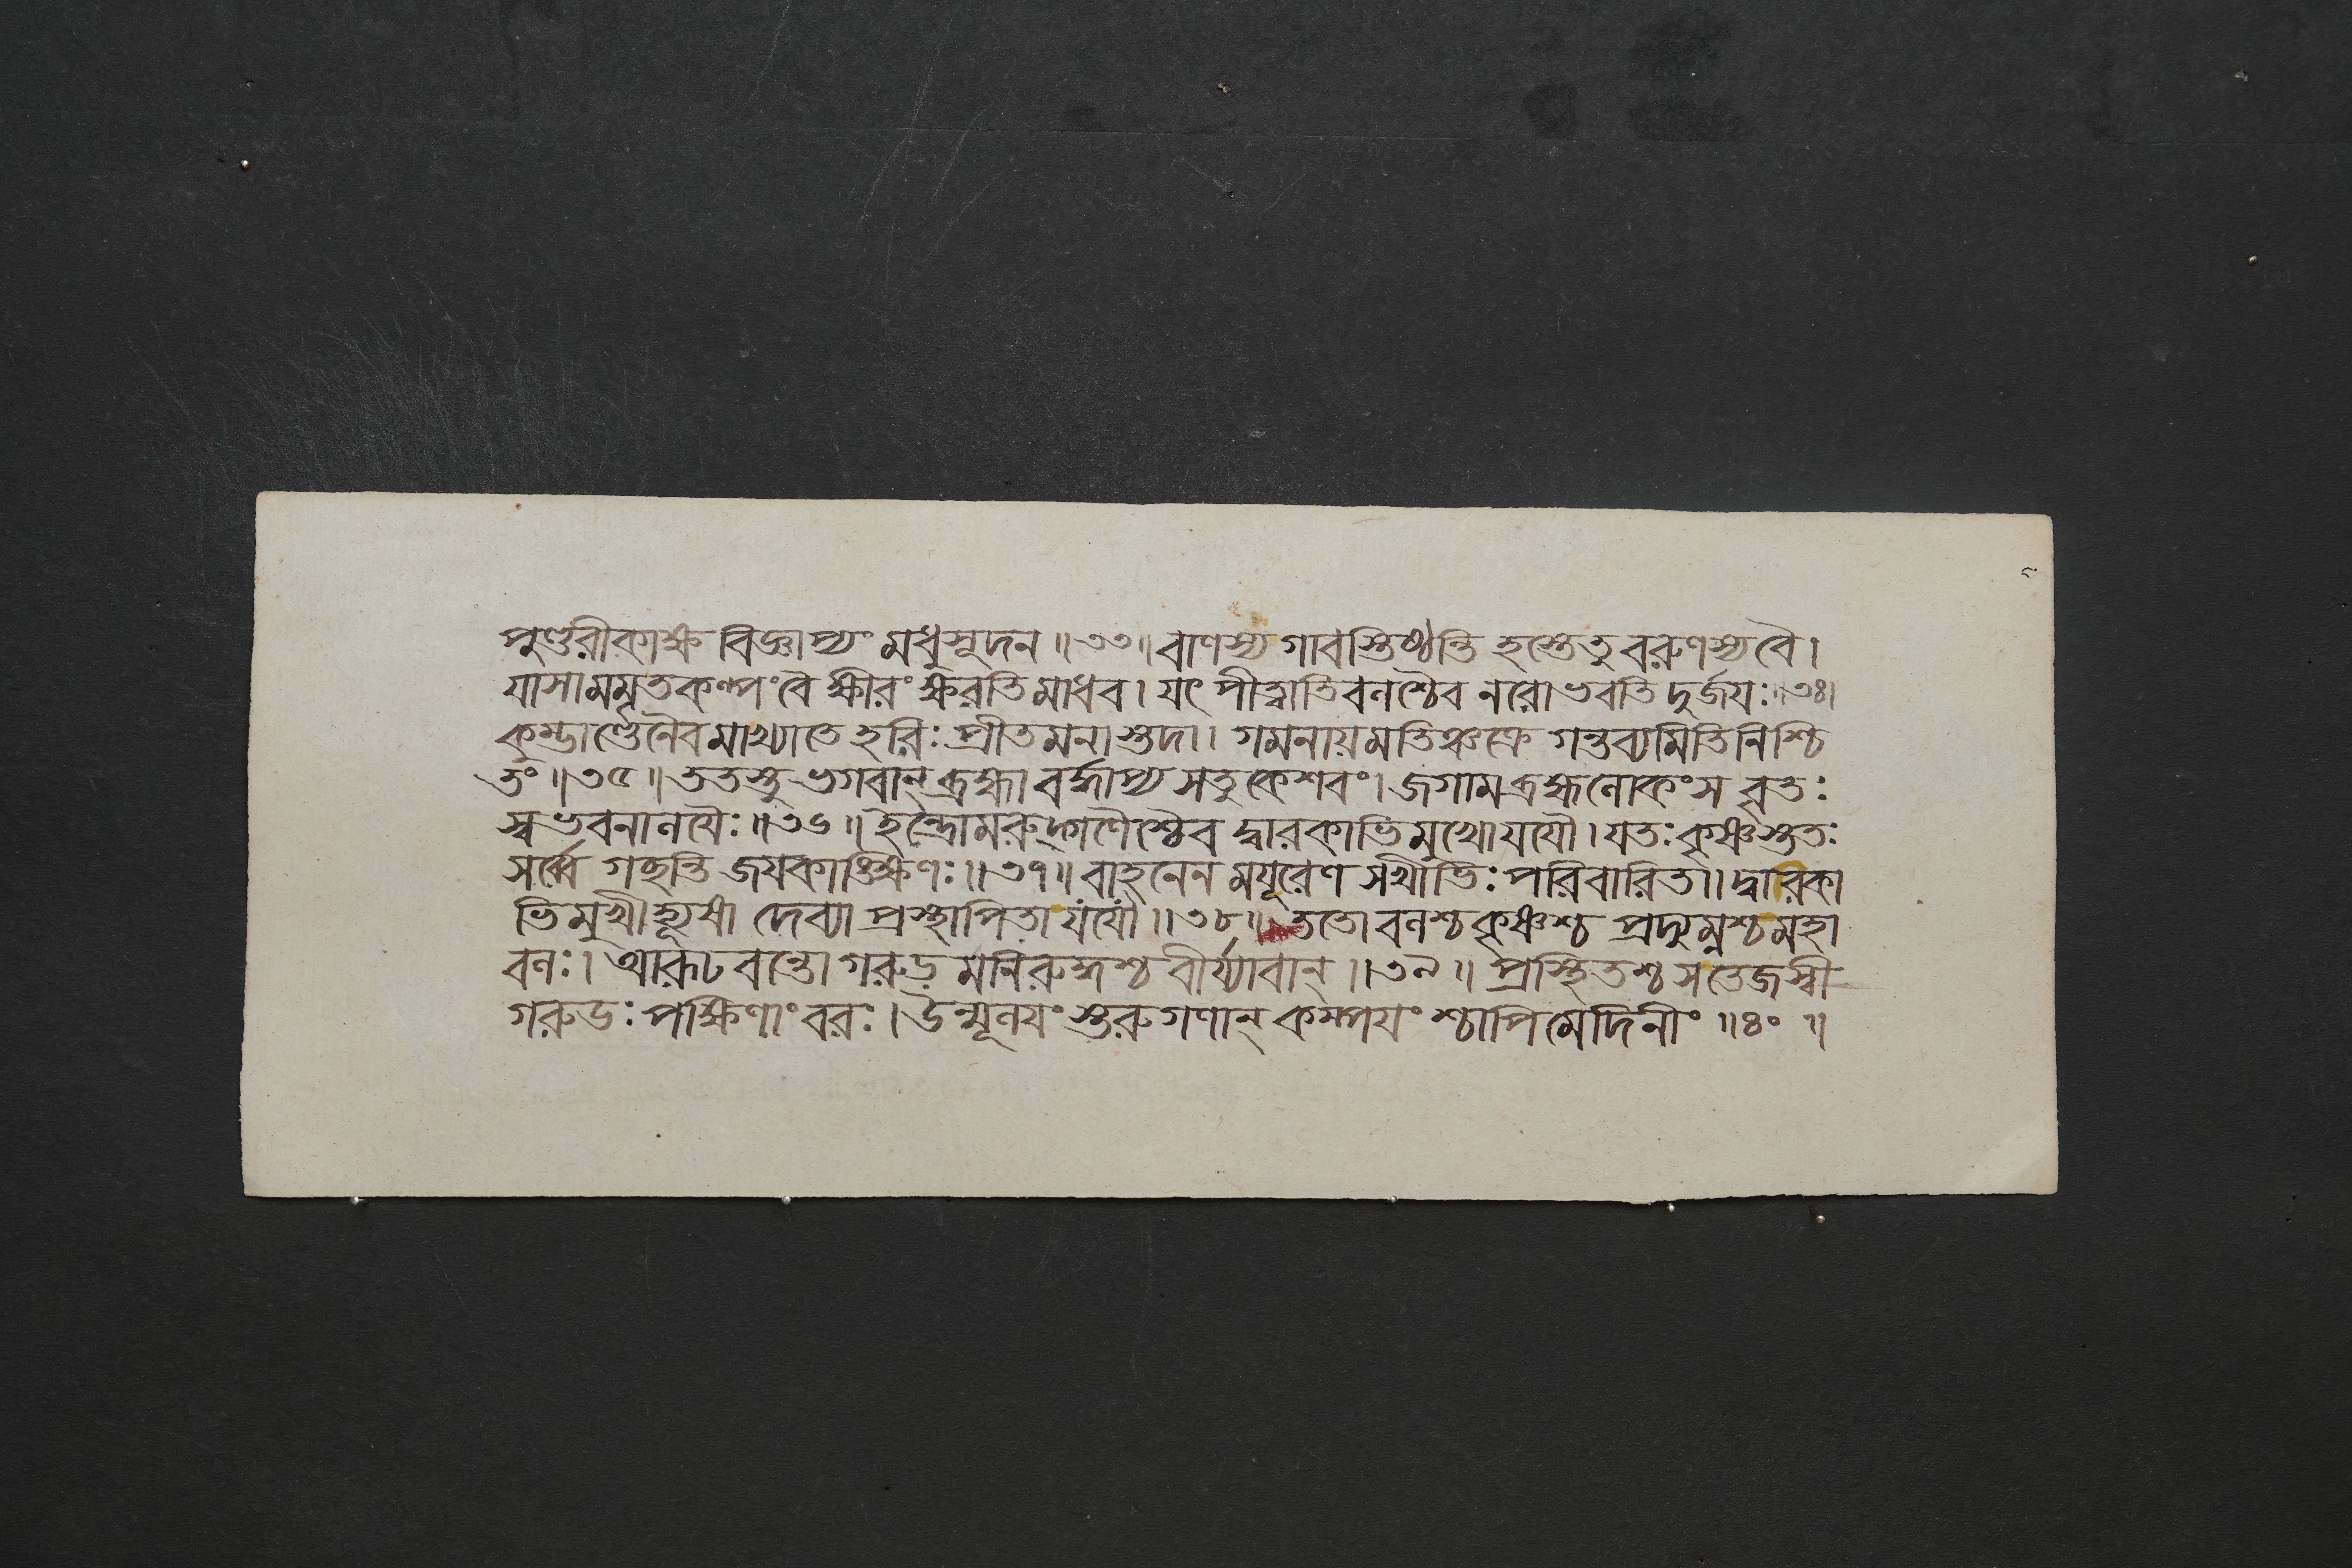 পুণ্ডরীকাক্ষ বিজ্ঞাপ্যং মধুসূদন ॥ ৩৩ ॥ বাণস্য গাবস্তিষ্ঠন্তি হস্তেতু বরুণস্য বৈ ।
যাসামমৃতকল্পং বৈ ক্ষীরং ক্ষরতি মাধব । যৎ পীত্বাতিবলশ্চৈব নরো ভবতি দুর্জয়ঃ ॥ ৩৪ ।
কুম্ভাণ্ডেনৈবমাখ্যাতে হরিঃ প্রীতমনাস্তদা । গমনায় মতিঞ্চক্রে গন্তব্যমিতি নিশ্চি
তং ॥ ৩৫ ॥ ততস্তু ভগবান্ ব্রহ্মা বর্দ্ধাপ্য সতু কেশবং । জগাম ব্রহ্মলোকং স বৃতঃ
স্বভবনালয়ৈঃ ॥ ৩৬ ॥ ইন্দ্রো মরুদ্গণৈশ্চৈব দ্বারকাভিমুখো যযৌ । যতঃ কৃষ্ণস্ততঃ
সর্ব্বে গচ্ছন্তি জয়কাঙ্ক্ষিণঃ ॥ ৩৭ ॥ বাহনেন ময়ূরেণ সখীভিঃ পরিবারিতা । দ্বারিকা
ভিমুখী হ্যূষা দেব্যা প্রস্থাপিতা যযৌ ॥ ৩৮ ॥ ততো বলশ্চ কৃষ্ণশ্চ প্রদ্যুম্নশ্চ মহা
বলঃ । আরূঢবন্তো গরুড়মনিরুদ্ধশ্চ বীর্য্যবান্ ॥ ৩৯ ॥ প্রস্থিতশ্চ স তেজস্বী
গরুডঃ পক্ষিণাং বরঃ । উন্মূলয়ংস্তরুগণান্ কম্পয়ংশ্চাপি মেদিনীং ॥ ৪০ ॥